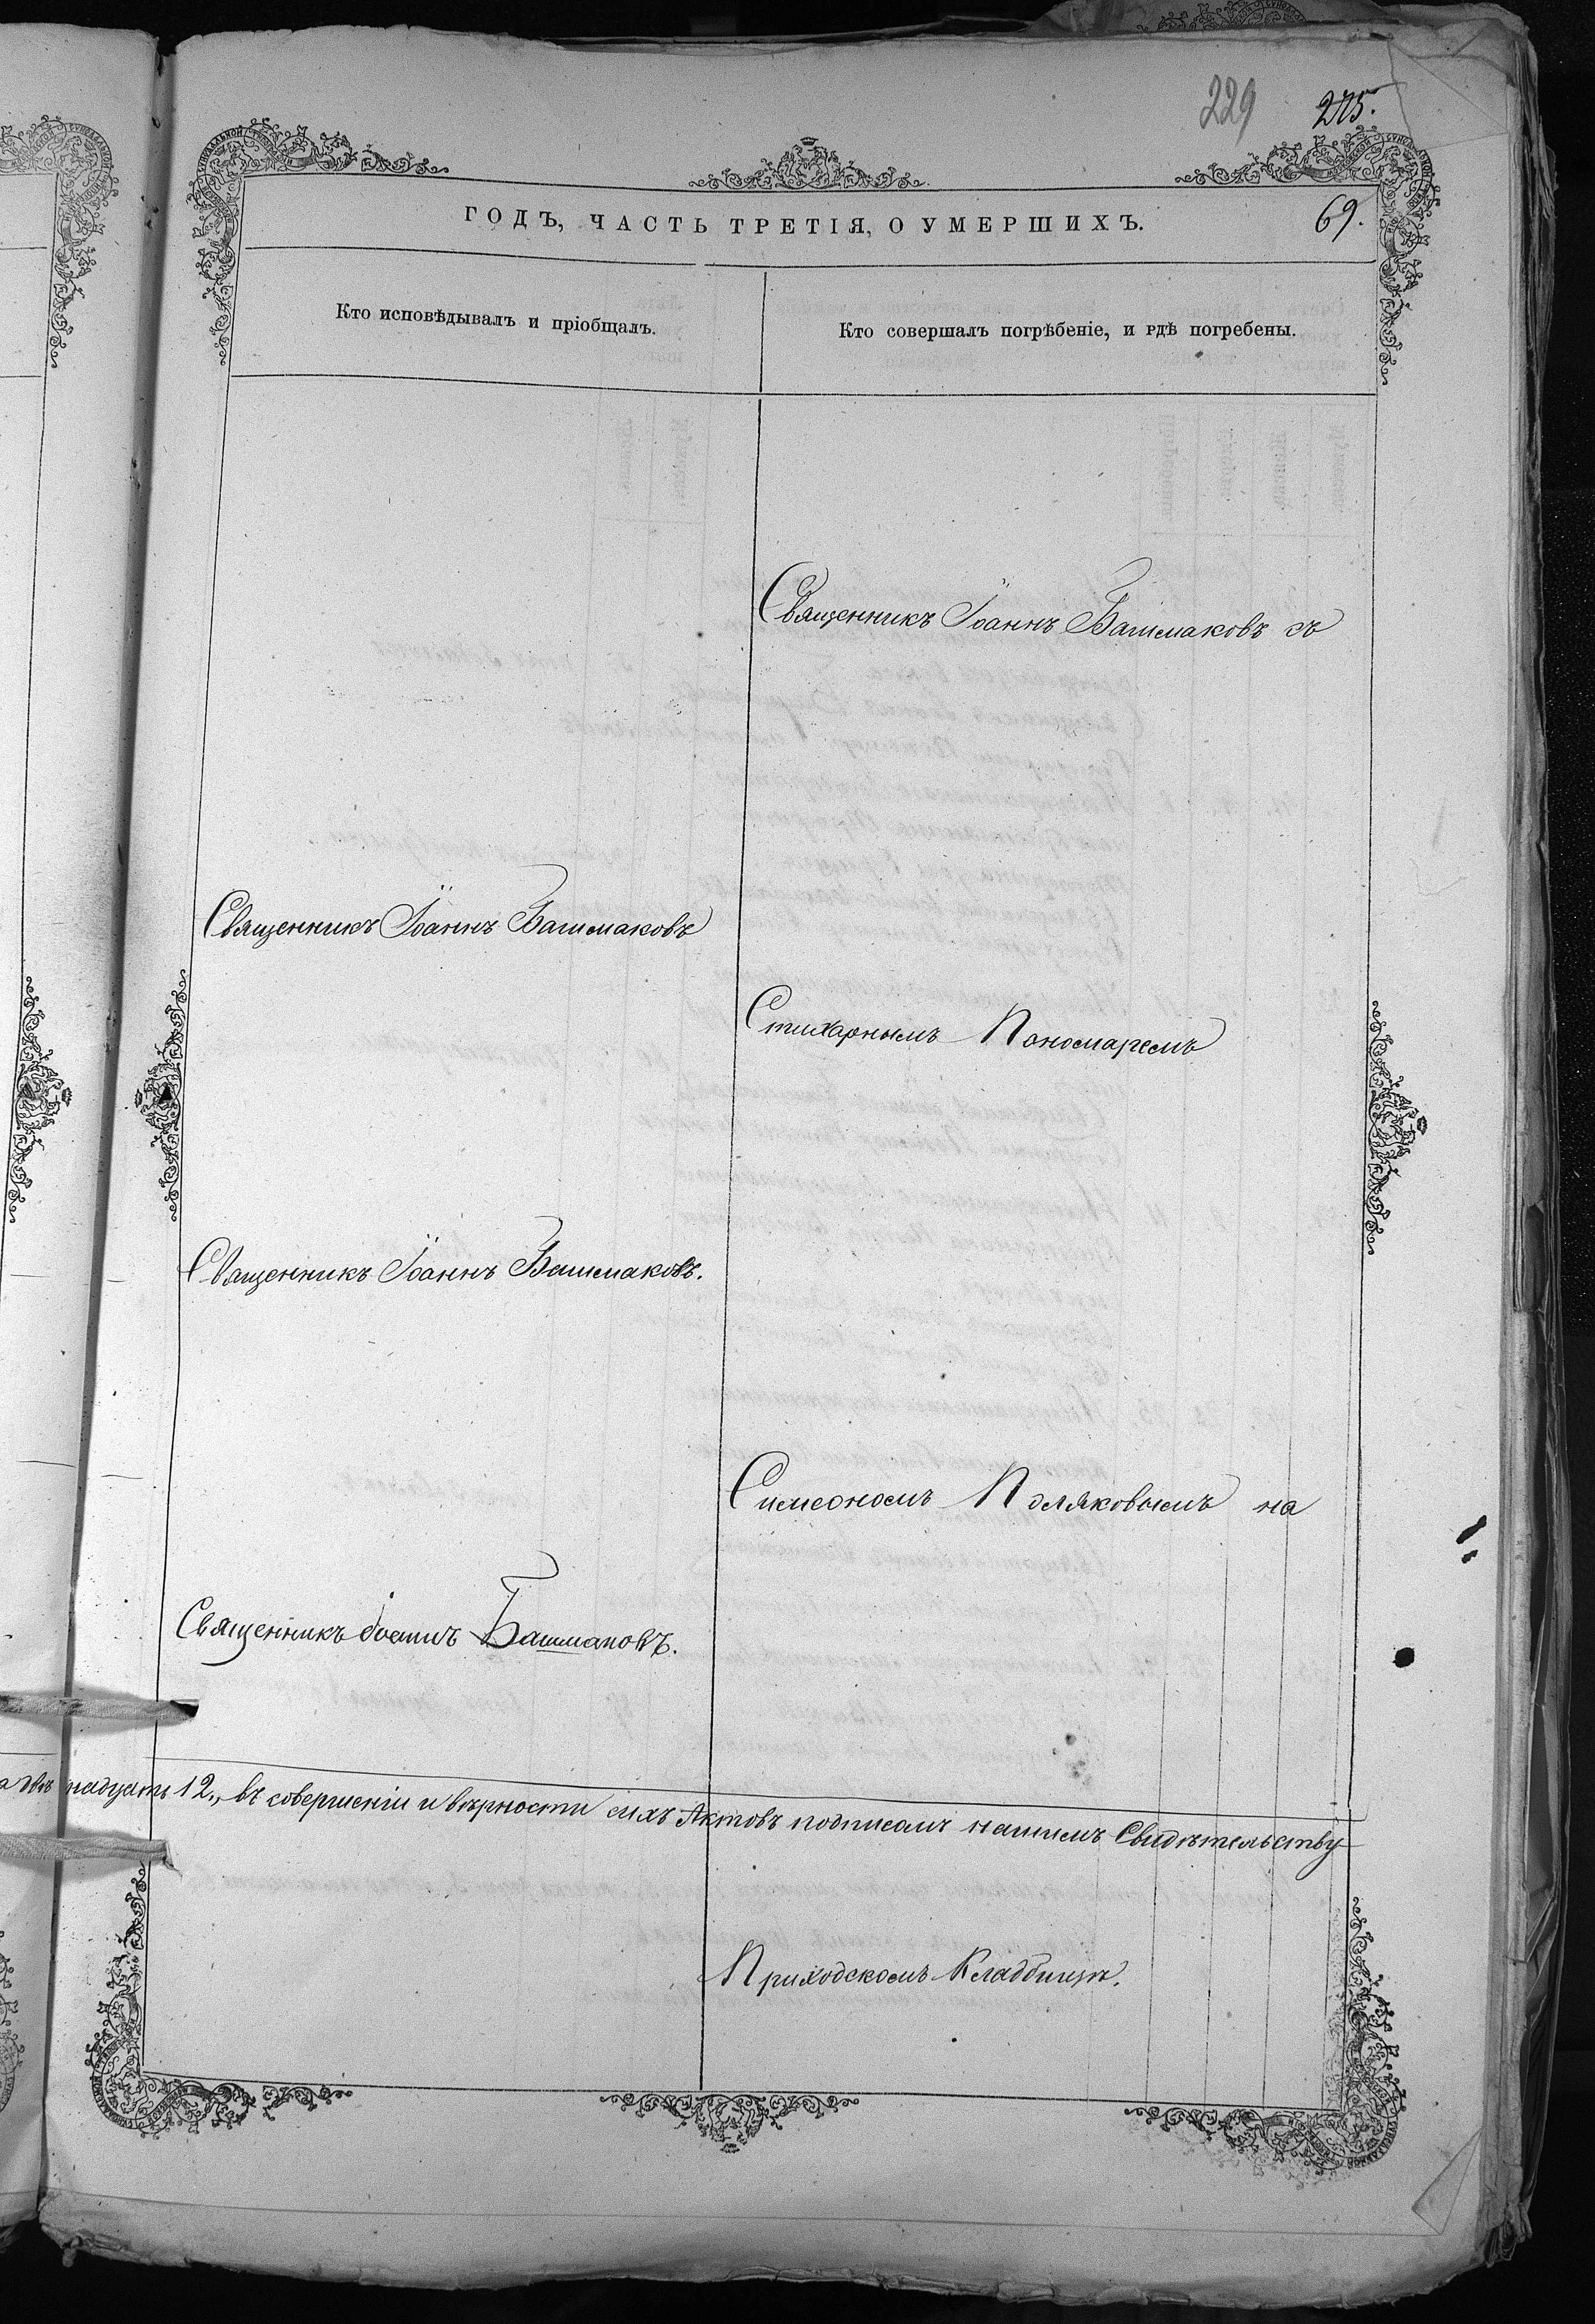 229 275.
ГОДЪ, ЧАСТЬ ТРЕТІЯ, О УМЕРШИХЪ.
69.
Кто исповѣдывалъ и пріобщалъ.
Кто совершалъ погрѣбеніе, и гдѣ погребены.
Священникъ Іоаннъ Башмаковъ съ
Священникъ Іоаннъ Башмаковъ
Стихарнымъ Пономаремъ
Священникъ Іоаннъ Башмаковъ.
Симеономъ Поляковымъ на
Священникъ Іоаннъ Башмаковъ.
надцать 12,, въ совершеніи и вѣрности сихъ Актовъ подписомъ нашимъ Свидѣтельству
Приходскомъ Кладбищѣ.